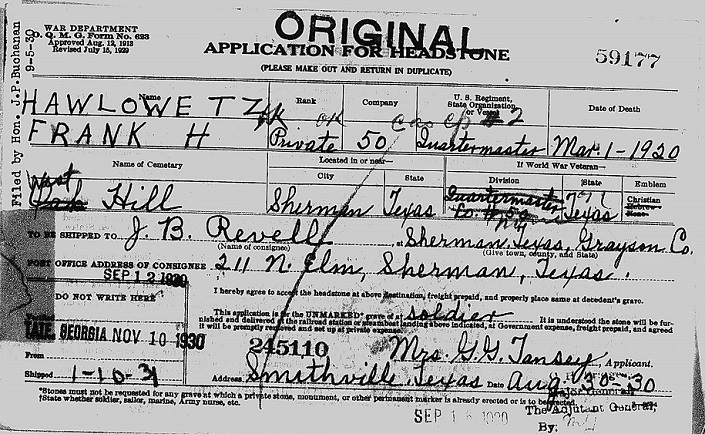 WAR DEPARTMENT
O. Q. M. G. Form No. 623
Approved Aug. 12, 1913
Revised July 15, 1929
ORIGINAL
APPLICATION FOR HEADSTONE
(PLEASE MAKE OUT AND RETURN IN DUPLICATE)
59177
Filed by Hon. J.P.Buchanan
9-5-30
Name
Rank
Company
U. S. Regiment,
State Organization,
or Vessel
Date of Death
HAWLOWETZ
FRANK H
Private
50
Quartermaster
Mar. 1-1920
Name of Cemetery
Located in or near—
City
State
If World War Veteran—
Division
State
Emblem
West
Hill
Sherman
Texas
Quartermaster
Texas
Christian
Hebrew
None
TO BE SHIPPED TO J. B. Revell at Sherman, Texas, Grayson Co.
(Name of consignee)
(Give town, county, and State)
POST OFFICE ADDRESS OF CONSIGNEE 211 N. Elm, Sherman, Texas.
SEP 12 1930
DO NOT WRITE HERE
I hereby agree to accept the headstone at above destination, freight prepaid, and properly place same at decedent's grave.
This application is for the UNMARKED* grave of a† soldier It is understood the stone will be fur-
nished and delivered at the railroad station or steamboat landing above indicated, at Government expense, freight prepaid, and agreed
it will be promptly removed and set up at private expense.
TATE, GEORGIA NOV 10 1930
245110
Mrs. G. G. Tansey, Applicant.
From
Shipped 1-10-31
Address Smithville, Texas Date Aug. 30-30
*Stones must not be requested for any grave at which a private stone, monument, or other permanent marker is already erected or is to be erected.
†State whether soldier, sailor, marine, Army nurse, etc.
Major General
The Adjutant General,
By: